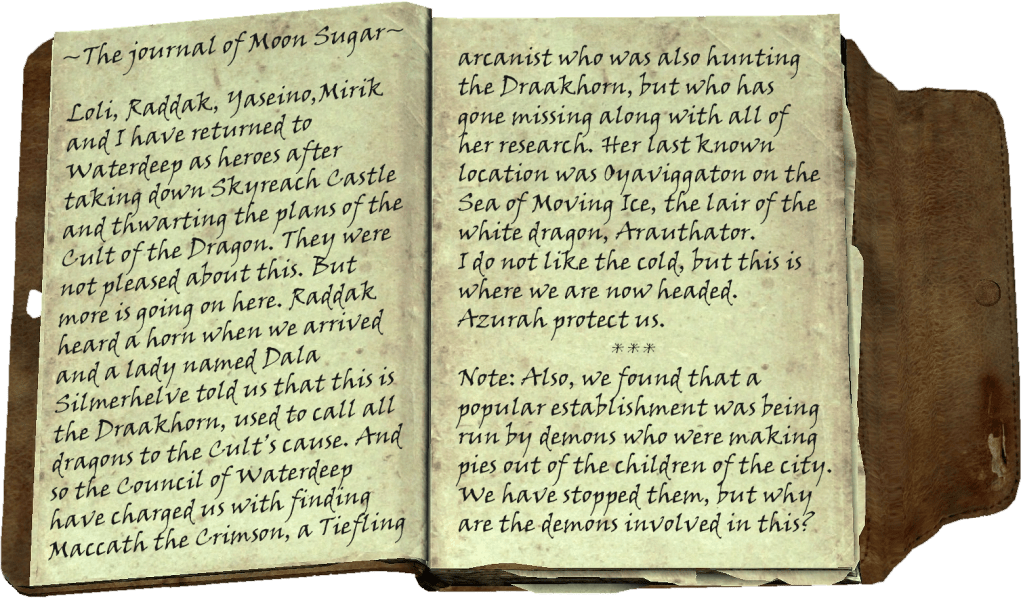 ~The journal of Moon Sugar~
Loli, Raddak, Yaseino,Mirik
and I have returned to
Waterdeep as heroes after
taking down Skyreach Castle
and thwarting the plans of the
Cult of the Dragon. They were
not pleased about this. But
more is going on here. Raddak
heard a horn when we arrived
and a lady named Dala
Silmerhelve told us that this is
the Draakhorn, used to call all
dragons to the Cult's cause. And
so the Council of Waterdeep
have charged us with finding
Maccath the Crimson, a Tiefling
arcanist who was also hunting
the Draakhorn, but who has
gone missing along with all of
her research. Her last known
location was Oyaviggaton on the
Sea of Moving Ice, the lair of the
white dragon, Arauthator.
I do not like the cold, but this is
where we are now headed.
Azurah protect us.
***
Note: Also, we found that a
popular establishment was being
run by demons who were making
pies out of the children of the city.
We have stopped them, but why
are the demons involved in this?